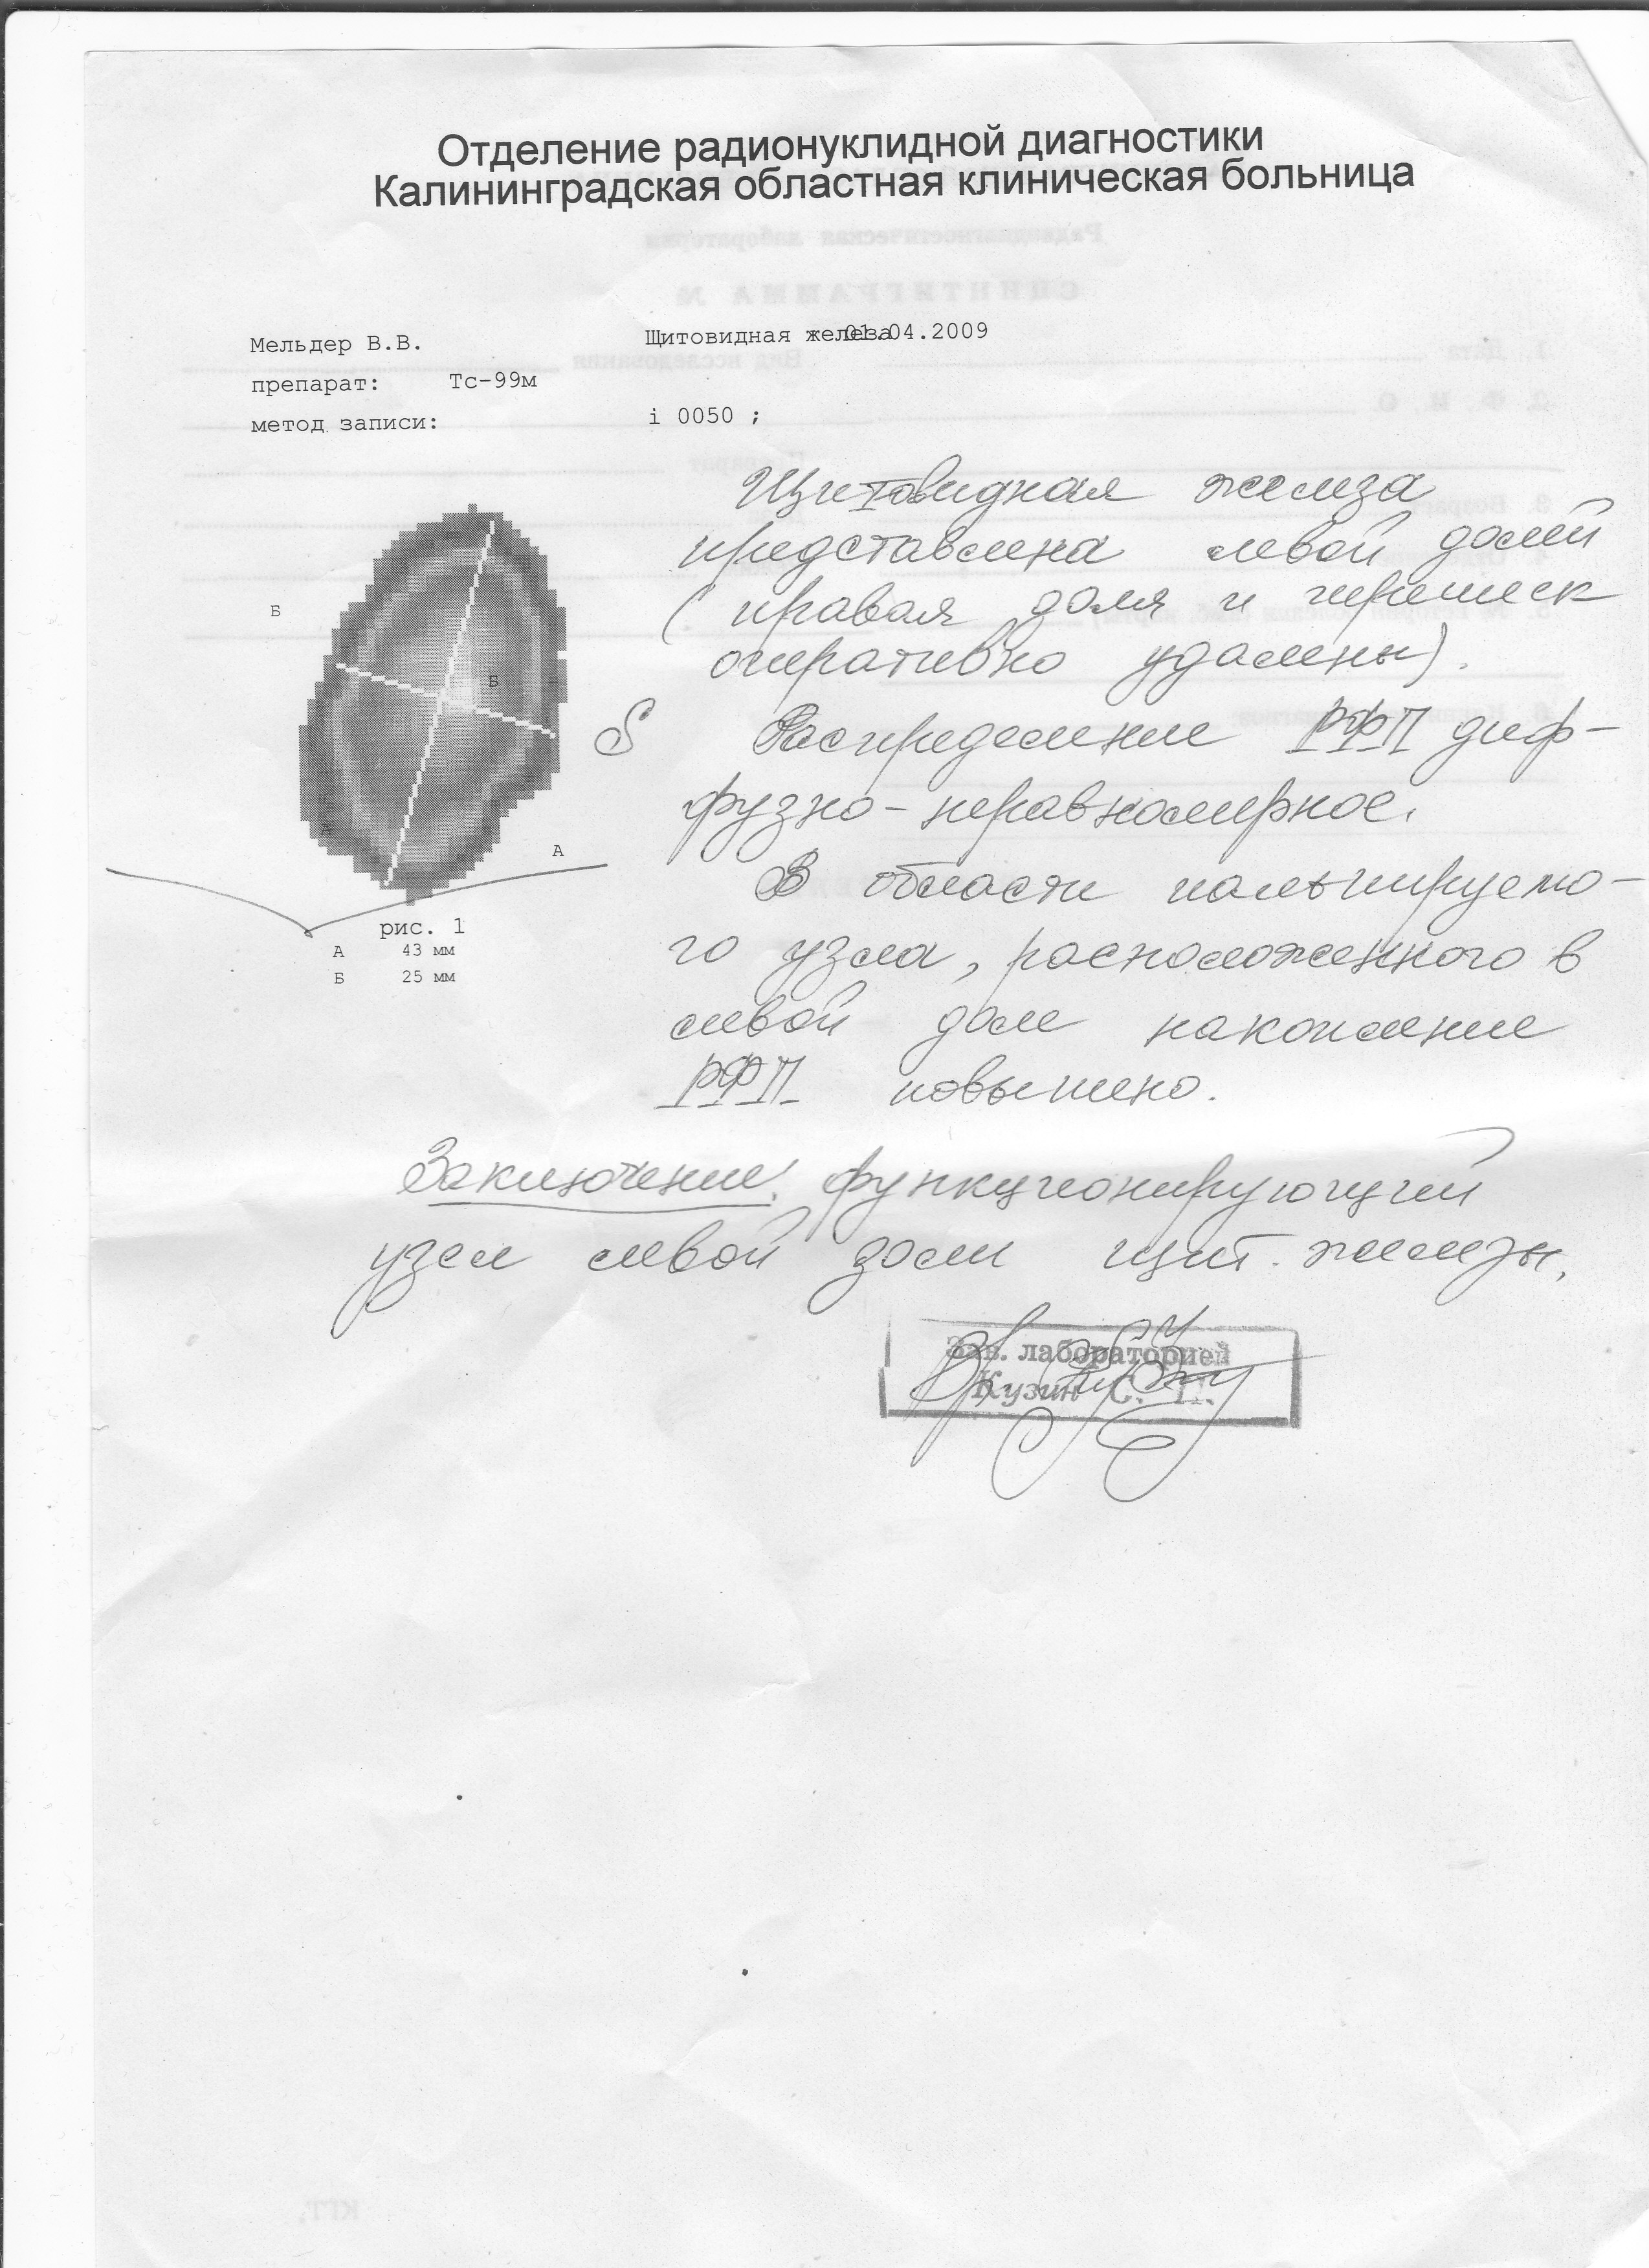 Отделение радионуклидной диагностики
Калининградская областная клиническая больница
Мельдер В.В. Щитовидная железа 01.04.2009
препарат: Тс-99м
метод записи: i 0050 ;
Щитовидная железа
представлена левой долей
(правая доля и перешеек
оперативно удалены).
Распределение РФП диф-
фузно-неравномерное.
В области пальпируемо-
го узла, расположенного в
левой доле накопление
РФП повышено.
Б
Б
S
А
А
рис. 1
А 43 мм
Б 25 мм
Заключение. функционирующий
узел левой доли щит. железы.
Зав. лабораторией
Кузин С.